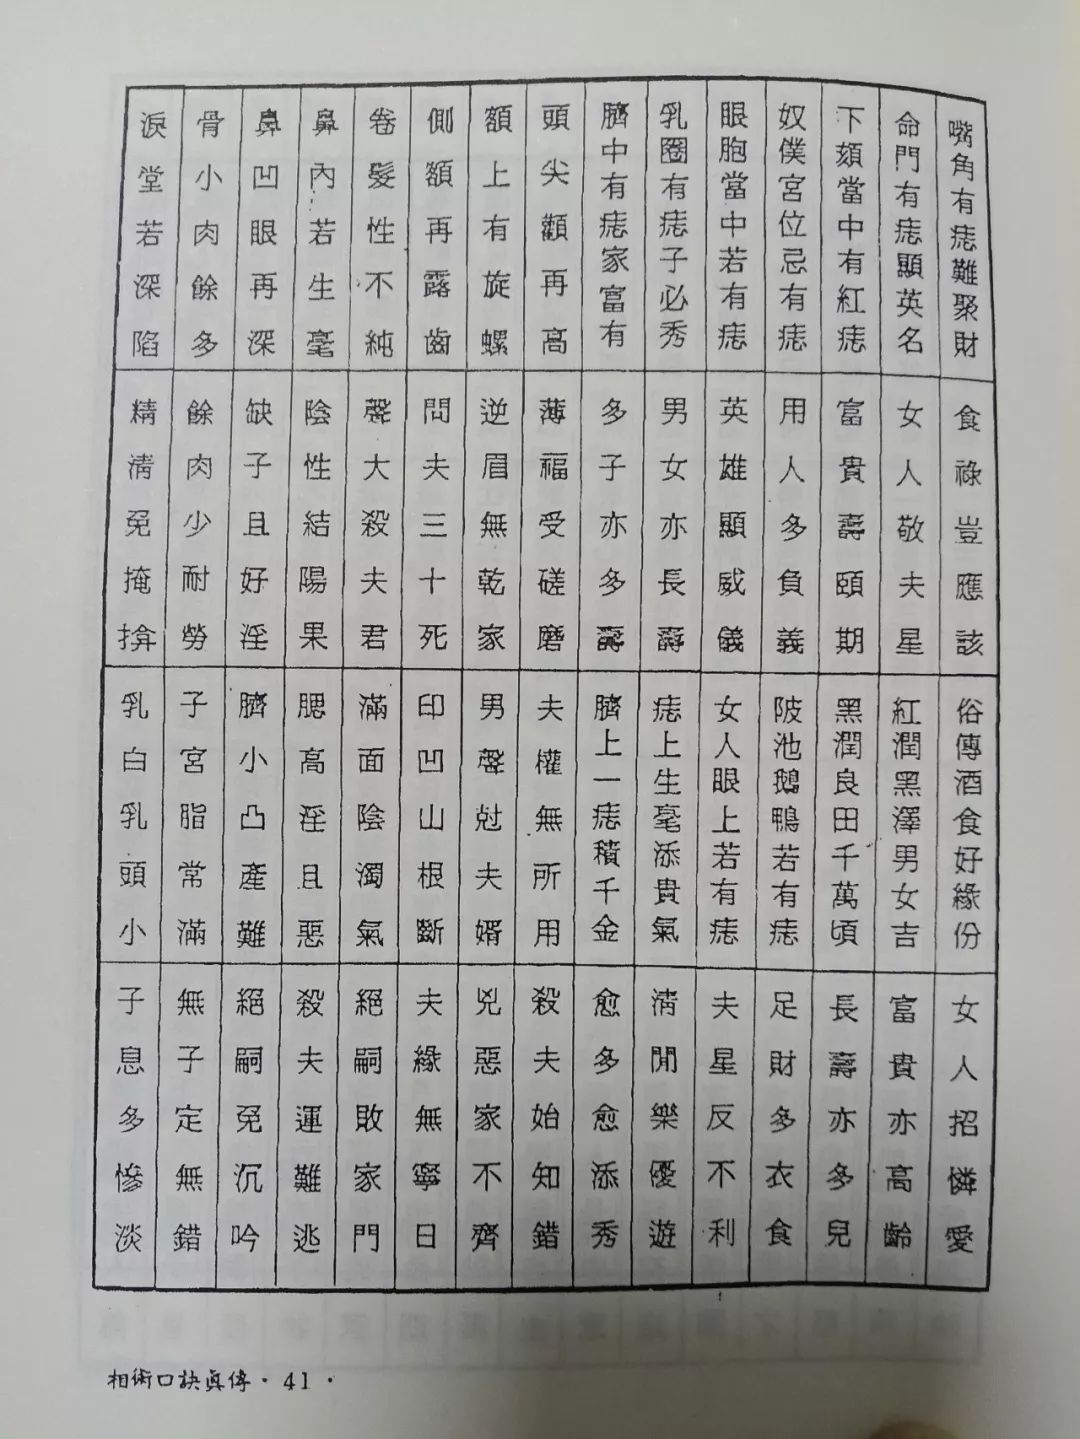 嘴角有痣難聚財 食祿豈應該 俗傳酒食好緣份 女人招憐愛
命門有痣顯英名 女人敬夫星 紅潤黑澤男女吉 富貴亦高齡
下頦當中有紅痣 富貴壽頤期 黑潤良田千萬頃 長壽亦多兒
奴僕宮位忌有痣 用人多負義 陂池鵝鴨若有痣 足財多衣食
眼胞當中若有痣 英雄顯威儀 女人眼上若有痣 夫星反不利
乳圈有痣子必秀 男女亦長壽 痣上生毫添貴氣 清閒樂優遊
臍中有痣家富有 多子亦多壽 臍上一痣積千金 愈多愈添秀
頭尖顴再高 薄福受磋磨 夫權無所用 殺夫始知錯
額上有旋螺 逆眉無乾家 男聲尅夫婿 兇惡家不齊
側額再露齒 問夫三十死 印凹山根斷 夫緣無寧日
卷髮性不純 聲大殺夫君 滿面陰濁氣 絕嗣敗家門
鼻內若生毫 陰性結陽果 腮高淫且惡 殺夫運難逃
鼻凹眼再深 缺子且好淫 臍小凸產難 絕嗣免沉吟
骨小肉餘多 餘肉少耐勞 子宮脂常滿 無子定無錯
淚堂若深陷 精清免掩揜 乳白乳頭小 子息多慘淡
相術口訣眞傳·41·